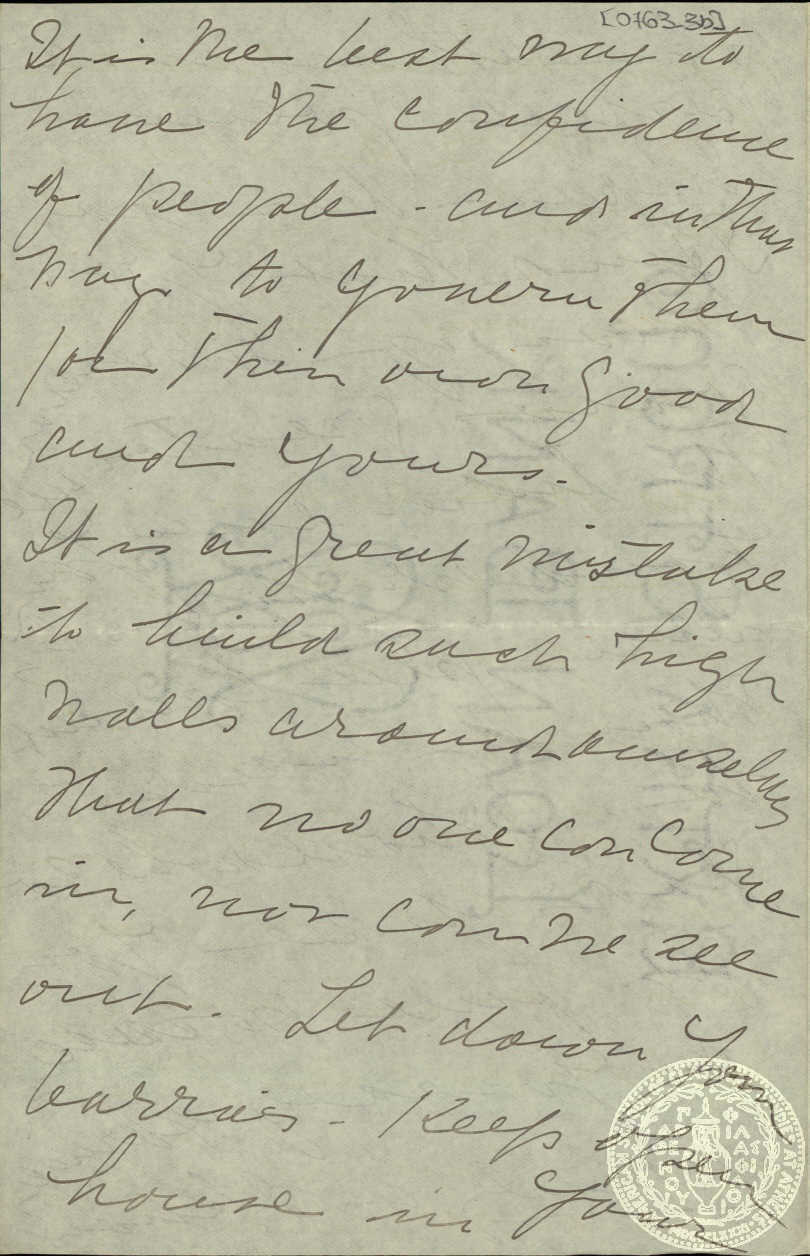 [0763_3b]
It is the best way to
have the confidence
of people - and in that
way to govern them
for their own good
and yours.
It is a great mistake
to build such high
walls around ourselves
that no one can come
in, nor can we see
out. Let down your
barries - Keep open
house in your